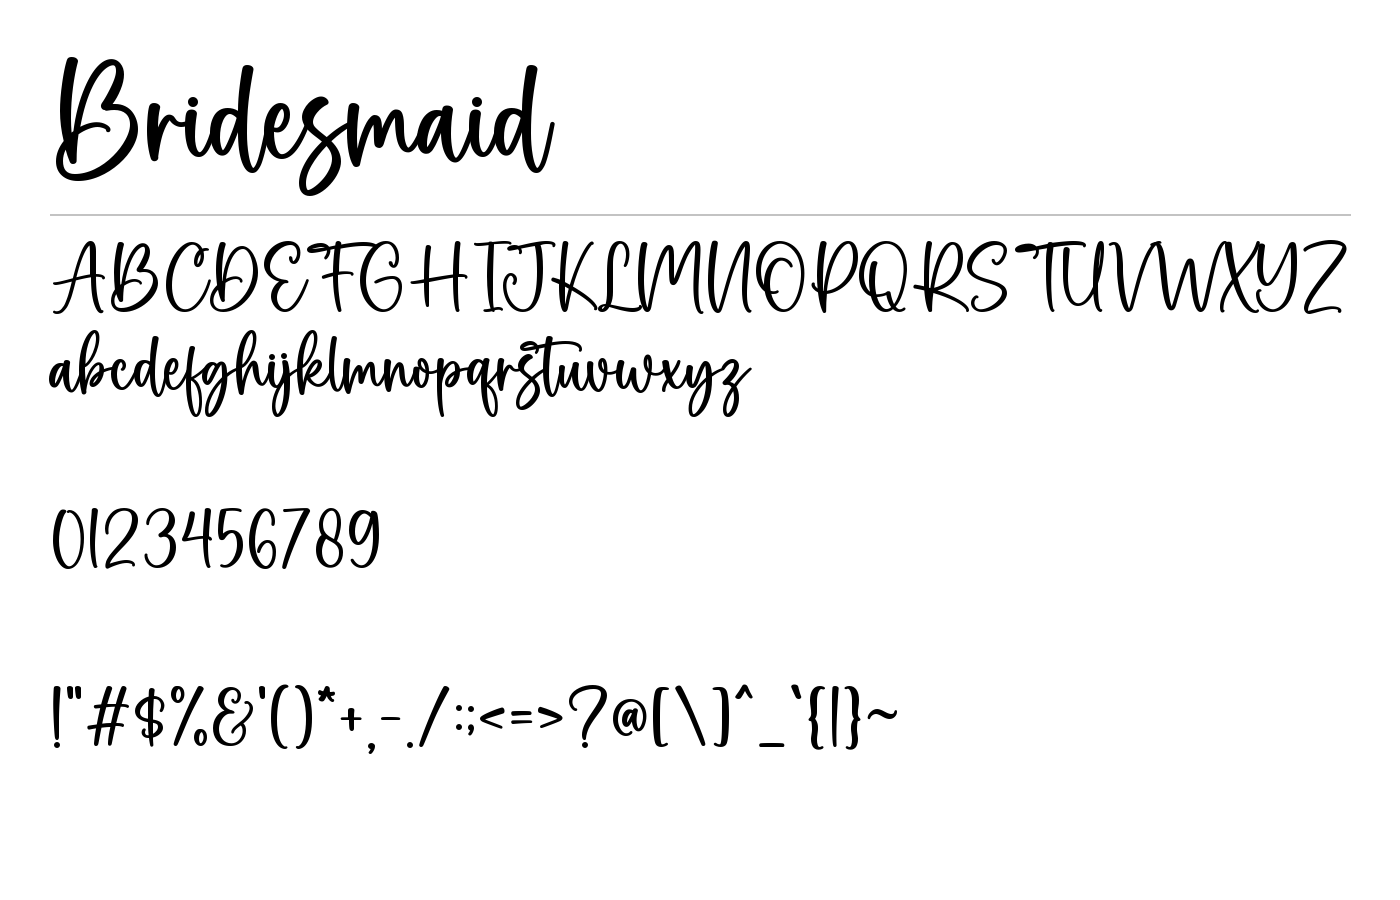 Bridesmaid
ABCDEFGHIJKLMNOPQRSTUVWXYZ
abcdefghijklmnopqrstuvwxyz
0123456789
!"#$%&'()*+,-./:;<=>?@[\]^_`{|}~